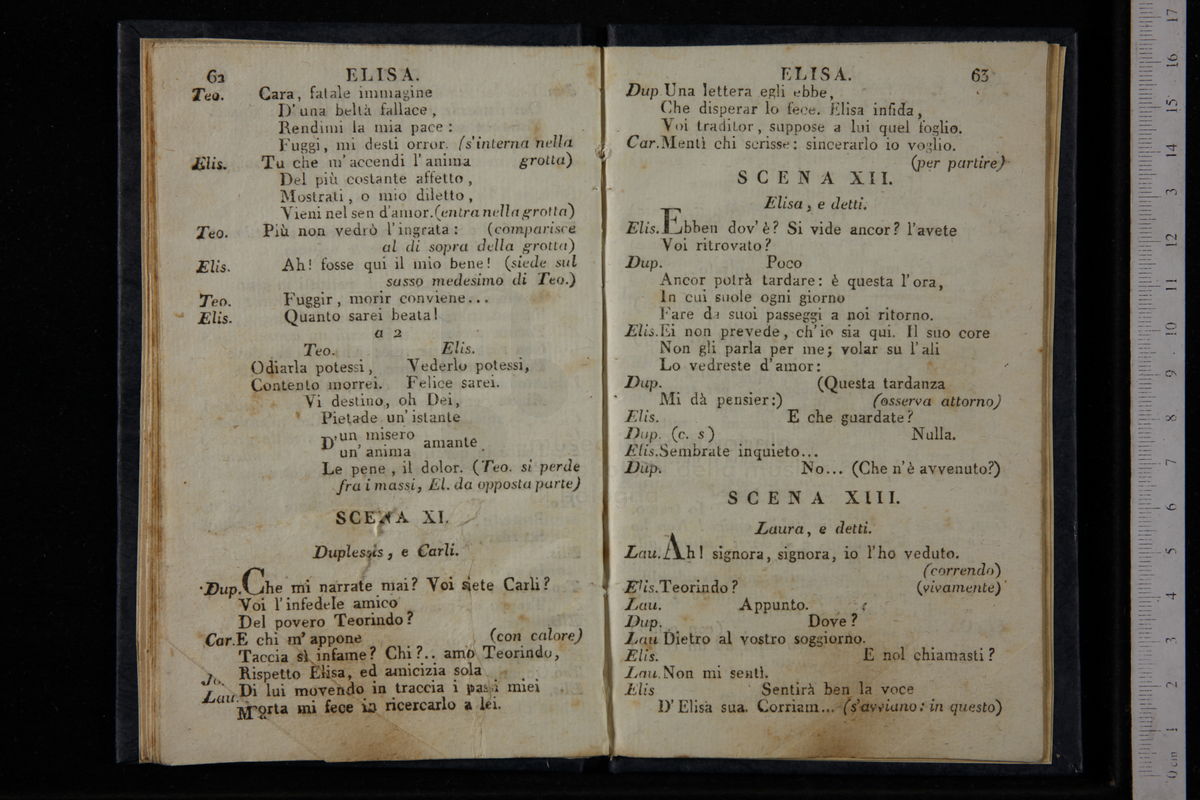 62 ELISA.
Teo. Cara, fatale immagine
D'una beltà fallace,
Rendimi la mia pace:
Fuggi, mi desti orror. (s'interna nella
Elis. Tu che m'accendi l'anima grotta)
Del più costante affetto,
Mostrati, o mio diletto,
Vieni nel sen d'amor. (entra nella grotta)
Teo. Più non vedrò l'ingrata: (comparisce
al di sopra della grotta)
Elis. Ah! fosse qui il mio bene! (siede sul
sasso medesimo di Teo.)
Teo. Fuggir, morir conviene...
Elis. Quanto sarei beata!
a 2
Teo. Elis.
Odiarla potessi, Vederlo potessi,
Contento morrei. Felice sarei.
Vi destino, oh Dei,
Pietade un'istante
D'un misero
un'anima amante
Le pene, il dolor. (Teo. si perde
fra i massi, El. da opposta parte)
SCENA XI.
Duplessis, e Carli.
Dup. Che mi narrate mai? Voi siete Carli?
Voi l'infedele amico
Del povero Teorindo?
Car. E chi m'appone (con calore)
Taccia sì infame? Chi?.. amo Teorindo,
Rispetto Elisa, ed amicizia sola
Di lui movendo in traccia i passi miei
Lau. Morta mi fece in ricercarlo a lei.
ELISA. 63
Dup Una lettera egli ebbe,
Che disperar lo fece. Elisa infida,
Voi traditor, suppose a lui quel foglio.
Car. Mentì chi scrisse: sincerarlo io voglio.
(per partire)
SCENA XII.
Elisa, e detti.
Elis. Ebben dov'è? Si vide ancor? l'avete
Voi ritrovato?
Dup. Poco
Ancor potrà tardare: è questa l'ora,
In cui suole ogni giorno
Fare da suoi passeggi a noi ritorno.
Elis. Ei non prevede, ch'io sia qui. Il suo core
Non gli parla per me; volar su l'ali
Lo vedreste d'amor:
Dup. (Questa tardanza
Mi dà pensier:) (osserva attorno)
Elis. E che guardate?
Dup. (c. s) Nulla.
Elis. Sembrate inquieto...
Dup. No... (Che n'è avvenuto?)
SCENA XIII.
Laura, e detti.
Lau. Ah! signora, signora, io l'ho veduto.
(correndo)
Elis. Teorindo? (vivamente)
Lau. Appunto.
Dup. Dove?
Lau Dietro al vostro soggiorno.
Elis. E nol chiamasti?
Lau. Non mi sentì.
Elis Sentirà ben la voce
D'Elisa sua. Corriam... (s'avviano: in questo)
0 cm 1 2 3 4 5 6 7 8 9 10 11 12 13 14 15 16 17